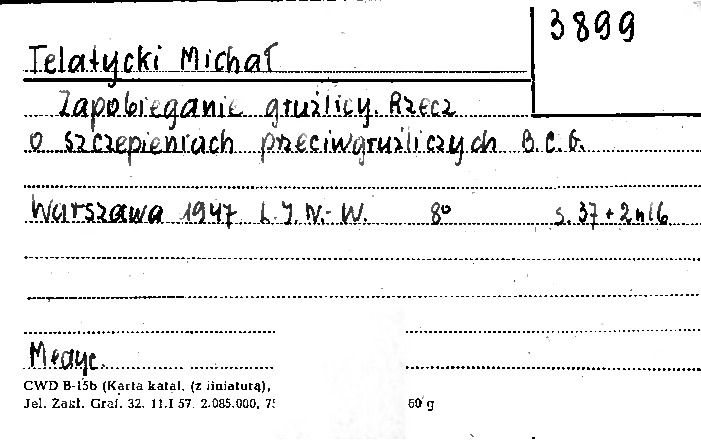 3899
Telatycki Michał
Zapobieganie gruźlicy. Rzecz
o szczepieniach przeciwgruźliczych B.C.G.
Warszawa 1947 L.I.N.-W. 8° s. 37 + 2 nlb
Medyc.
CWD B-15b (Karta katal. (z liniaturą),
Jel. Zakł. Graf. 32. 11.I 57. 2.085.000, 60 g